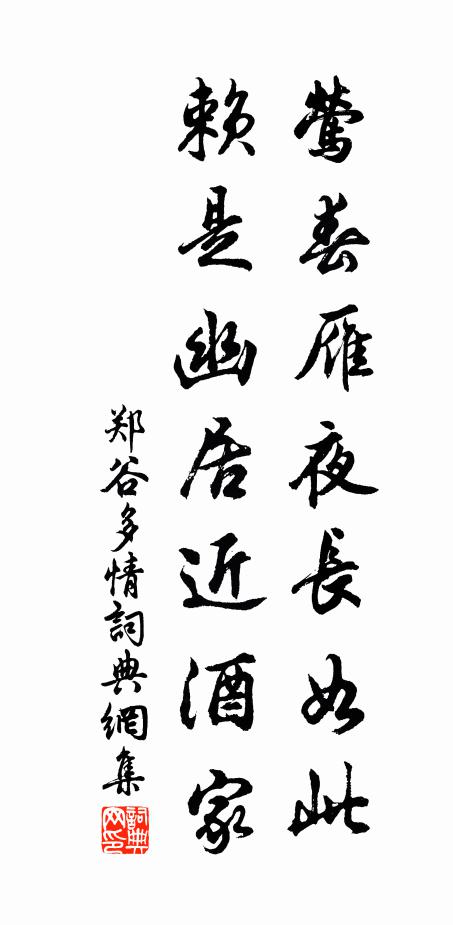 鶯春雁夜長如此
賴是幽居近酒家
郑谷多情詞典網集
詞典网印